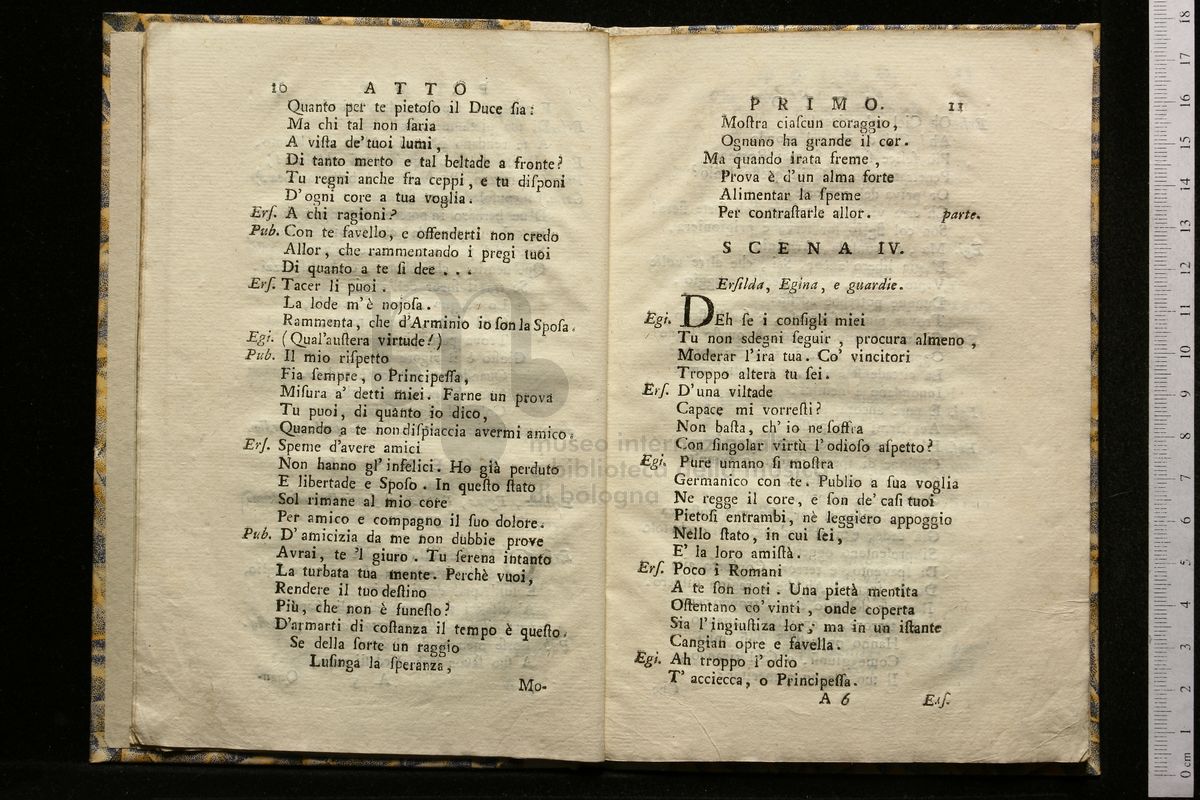 10 ATTO
Quanto per te pietoſo il Duce ſia:
Ma chi tal non ſaria
A' viſta de' tuoi lumi,
Di tanto merto e tal beltade a fronte?
Tu regni anche fra ceppi, e tu diſponi
D'ogni core a tua voglia.
Erſ. A chi ragioni?
Pub. Con te favello, e offenderti non credo
Allor, che rammentando i pregi tuoi
Di quanto a te ſi dee . . .
Erſ. Tacer li puoi.
La lode m'è nojoſa.
Rammenta, che d'Arminio io ſon la Spoſa.
Egi. (Qual'auſtera virtude!)
Pub. Il mio riſpetto
Fia ſempre, o Principeſſa,
Miſura a' detti miei. Farne un prova
Tu puoi, di quanto io dico,
Quando a te non diſpiaccia avermi amico.
Erſ. Speme d'avere amici
Non hanno gl' infelici. Ho già perduto
E libertade e Spoſo. In queſto ſtato
Sol rimane al mio core
Per amico e compagno il ſuo dolore.
Pub. D'amicizia da me non dubbie prove
Avrai, te 'l giuro. Tu ſerena intanto
La turbata tua mente. Perchè vuoi,
Rendere il tuo deſtino
Più, che non è funeſto?
D'armarti di coſtanza il tempo è queſto.
Se della ſorte un raggio
Luſinga la ſperanza,
Mo-
PRIMO. 11
Moſtra ciaſcun coraggio,
Ognuno ha grande il cor.
Ma quando irata freme,
Prova è d'un alma forte
Alimentar la ſpeme
Per contraſtarle allor. parte.
SCENA IV.
Erſilda, Egina, e guardie.
Egi. DEh ſe i conſigli miei
Tu non sdegni ſeguir, procura almeno,
Moderar l'ira tua. Co' vincitori
Troppo altera tu ſei.
Erſ. D'una viltade
Capace mi vorreſti?
Non baſta, ch' io ne ſoffra
Con ſingolar virtù l'odioſo aſpetto?
Egi. Pure umano ſi moſtra
Germanico con te. Publio a ſua voglia
Ne regge il core, e ſon de' caſi tuoi
Pietoſi entrambi, nè leggiero appoggio
Nello ſtato, in cui ſei,
E' la loro amiſtà.
Erſ. Poco i Romani
A te ſon noti. Una pietà mentita
Oſtentano co' vinti, onde coperta
Sia l'ingiuſtiza lor; ma in un iſtante
Cangian opre e favella.
Egi. Ah troppo l'odio
T' acciecca, o Principeſſa.
A 6 Erſ.
museo inter
biblioteca della musica
di bologna
0 cm 1 2 3 4 5 6 7 8 9 10 11 12 13 14 15 16 17 18